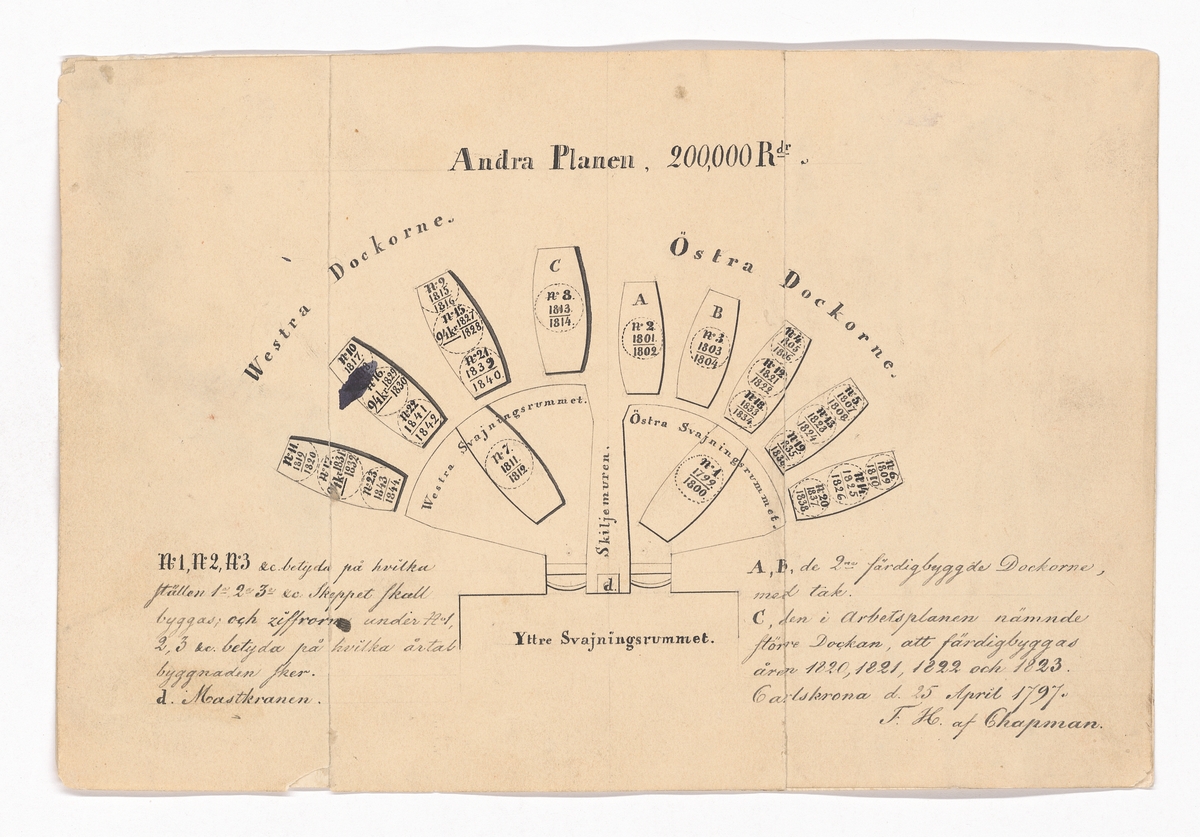 Andra Planen, 200,000 Rdr.
Westra Dockorne.
Östra Dockorne.
N:11.
1819
1820.
1831.
1832.
N:23.
1843
1844.
N:10
1817.
N:16.
94kr 1829
1830
N:22.
1841
1842
N:9
1815.
1816.
N:15.
94kr 1827
1828.
N:21.
1839
1840.
C
N:8.
1813.
1814.
A
N:2
1801.
1802.
B
N:3.
1803
1804.
N:4.
N:12
1821
1822
N:18.
1833
1834.
N:5.
1807
1808.
N:13
1823
1824.
N:19.
1835
N:6.
1809
1810.
N:14.
1825
1826.
N:20.
1837.
1838.
Westra Svajningsrummet.
N:7.
1811.
1812.
Östra Svajningsrummet.
N:1
1799.
1800.
Skiljemuren.
d.
Yttre Svajningsrummet.
N:1, N:2, N:3 &c. betyda på hvilka
ställen 1:a 2:a 3:e &c Skeppet skall
byggas; och ziffrorne under N:1,
2, 3 &c. betyda på hvilka årtal
byggnaden sker.
d. Mastkranen.
A, B, de 2:ne färdigbyggde Dockorne,
med tak.
C, den i Arbetsplanen nämnde
större Dockan, att färdigbyggas
åren 1820, 1821, 1822 och 1823.
Carlskrona d. 25 April 1797.
F. H. af Chapman.